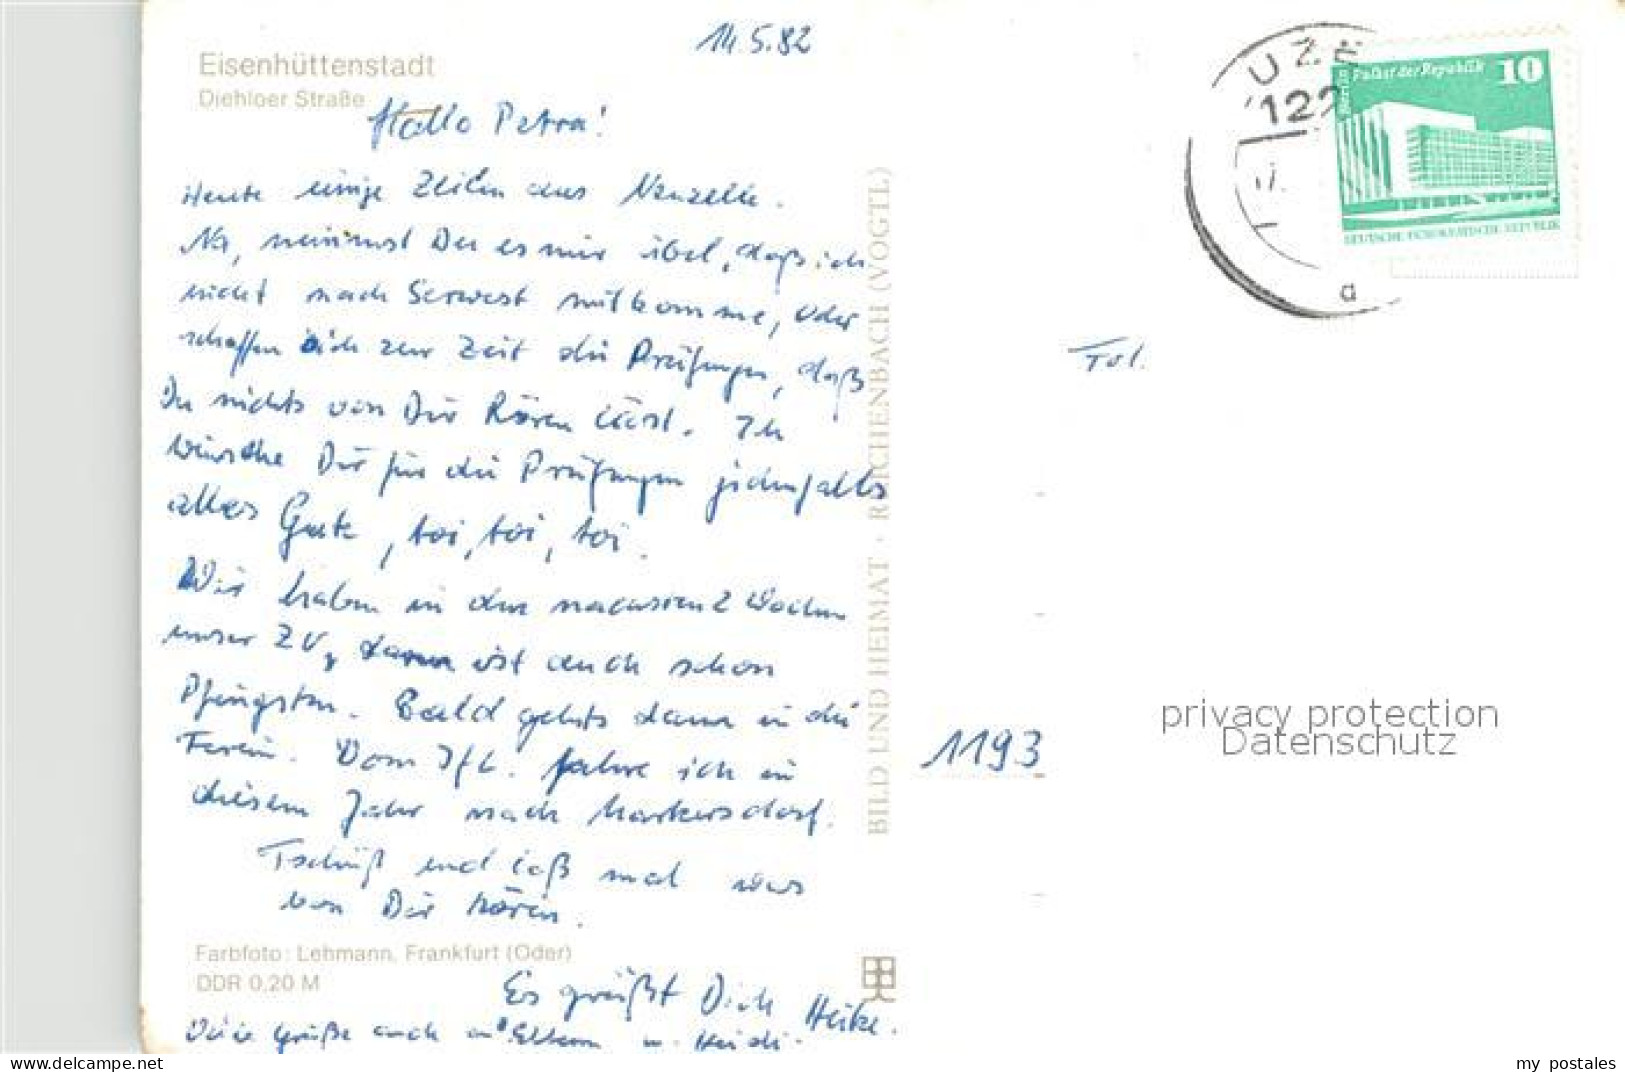 14.5.82
Eisenhüttenstadt
Diehloer Straße
Hallo Petra!
Heute einige Zeilen aus Neuzelle.
Na, nimmst Du es mir übel, daß ich
nicht nach Serwest mitkomme, oder
schaffen Dich zur Zeit die Prüfungen, daß
Du nichts von Dir hören läßt. Ich
wünsche Dir für die Prüfungen jedenfalls
alles Gute, toi, toi, toi.
Wir haben in den nächsten 2 Wochen
unser ZV, dann ist auch schon
Pfingsten. Bald gehts dann in die
Ferien. Vom IfL. fahre ich in
diesem Jahr nach Markersdorf.
Tschüß und laß mal was
von Dir hören.
Farbfoto: Lehmann, Frankfurt (Oder)
DDR 0,20 M
Es grüßt Dich Heike.
Viele Grüße auch an Eltern u. Heidi.
BILD UND HEIMAT · REICHENBACH (VOGTL)
UZE
122
a
Berlin
Palast der Republik 10
DEUTSCHE DEMOKRATISCHE REPUBLIK
1193
privacy protection
Datenschutz
my postales